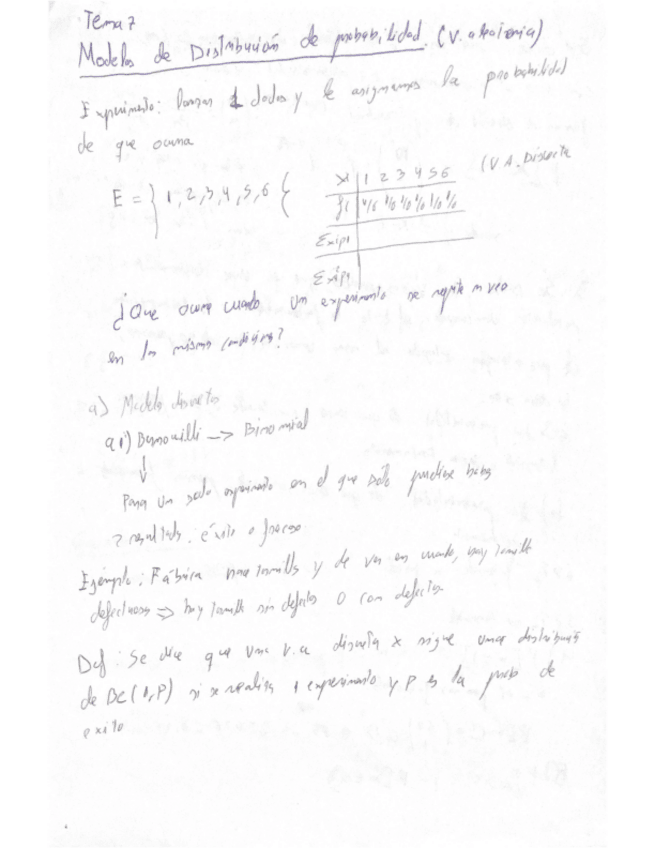 Tema 7
Modelos de Distribución de probabilidad. (V. aleatoria)
Experimento: lanzar 1 dados y le asignamos la probabilidad
de que ocurra
E = } 1, 2, 3, 4, 5, 6 {
xi | 1 2 3 4 5 6
(V A. Discreta
fi | 1/6 1/6 1/6 1/6 1/6 1/6
Σxipi
Σxi²pi
¿Que ocurre cuando un experimento se repite n veces
en las mismas condiciones?
a) Modelos discretos
a1) Bernouilli -> Binomial
Para un solo experimento en el que solo pudiese haber
2 resultads: éxito o fracaso
Ejemplo: Fábrica tornillos y de vez en cuando, hay tornills
defectuosos => hay tornills sin defectos o con defectos
Def: Se dice que una v.a discreta x sigue una distribución
de Be(1,P) si se realiza 1 experimento y P es la prob de
exito